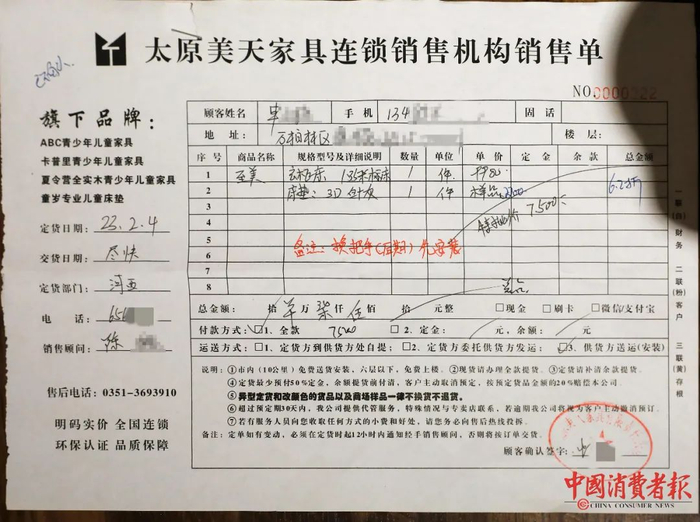 太原美天家具连锁销售机构销售单
NO.0000
旗下品牌：
ABC青少年儿童家具
卡普里青少年儿童家具
夏令营全实木青少年儿童家具
童岁专业儿童床垫
定货日期：23.2.4
交货日期：尽快
定货部门：河西
电 话：
销售顾问：陈
售后电话：0351-3693910
明码实价 全国连锁
环保认证 品质保障
顾客姓名 手机 134 固话
地址： 万柏林区 楼层：
序号 商品名称 规格型号及详细说明 数量 单位 单价 定金 余款 总金额
1 亚美 1 件
2 床垫：3D 1 件 样品
3 特批价 7500
4
5 备注：换把手（后期）先安装
6
7
8
总金额： 拾 万 柒 仟 伍 佰 拾 元整 □现金 □刷卡 □微信/支付宝
付款方式：□1、全款 7500 □2、定金： 元，余额： 元
运送方式：□1、定货方到供货方处自提；□2、定货方委托供货方发运；□3、供货方送运(安装)
说明：①市内（10公里）免费送货安装，六层以下，免费上楼。②现货请办理全款提货。③定货请补清余款提货。
④定货最少预付50%定金，余额提货前付清，客户主动取消预定，按预定货品金额的20%赔偿本公司。
⑤异型定货和改颜色的货品以及商场样品一律不换货不退货。
⑥超过预定期30天内，我公司提供代管服务，特殊情况与专卖店联系，若逾期我公司将视为客户主动撤消预订。
⑦若有服务人员向您收取任何方式的小费和好处，请您务必向售后热线投拆。
备注：定单如有变动，必须在定货时起12小时内通知经手销售顾问，否则将按订单交货。
顾客确认签字：
一联(白)财务 二联(粉)客户 三联(黄)存根
中國消費者報
CHINA CONSUMER NEWS